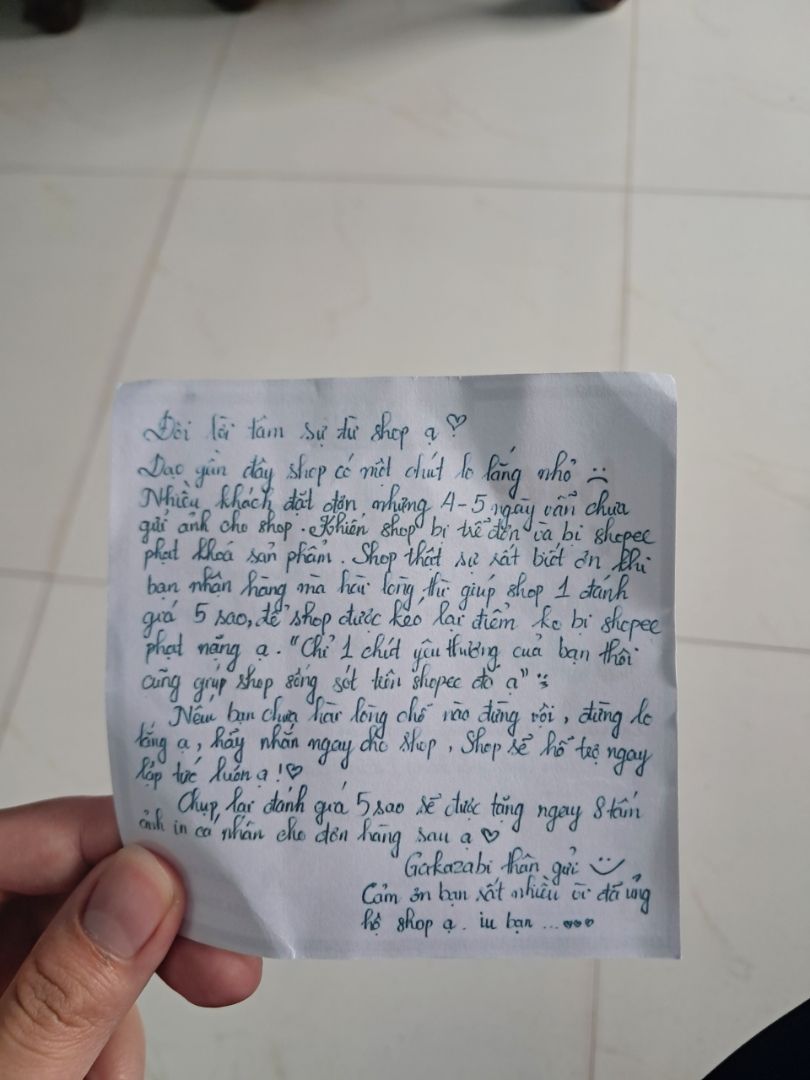 Đôi lời tâm sự từ shop ạ ♡
Dạo gần đây shop có một chút lo lắng nhỏ :(
Nhiều khách đặt đơn nhưng 4-5 ngày vẫn chưa
gửi ảnh cho shop. Khiến shop bị trễ đơn và bị shopee
phạt khoá sản phẩm. Shop thật sự rất biết ơn khi
bạn nhận hàng mà hài lòng thì giúp shop 1 đánh
giá 5 sao, để shop được kéo lại điểm ko bị shopee
phạt nặng ạ. "Chỉ 1 chút yêu thương của bạn thôi
cũng giúp shop sống sót trên shopee đó ạ" :;
Nếu bạn chưa hài lòng chỗ nào đừng vội, đừng lo
lắng ạ, hãy nhắn ngay cho shop, Shop sẽ hỗ trợ ngay
lập tức luôn ạ! ♡
Chụp lại đánh giá 5 sao sẽ được tặng ngay 8 tấm
ảnh in cá nhân cho đơn hàng sau ạ ♡
Gakazabi thân gửi :)
Cảm ơn bạn rất nhiều vì đã ủng
hộ shop ạ. iu bạn ... ♡♡♡